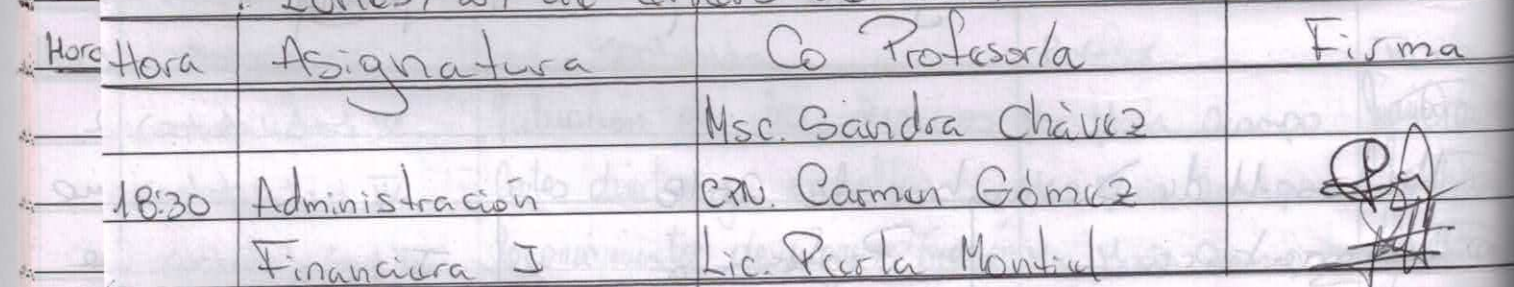 Hora Hora Asignatura Co Profesor/a Firma
Msc. Sandra Chávez
18:30 Administración CPN. Carmen Gómez
Financiera I Lic. Perla Montiel